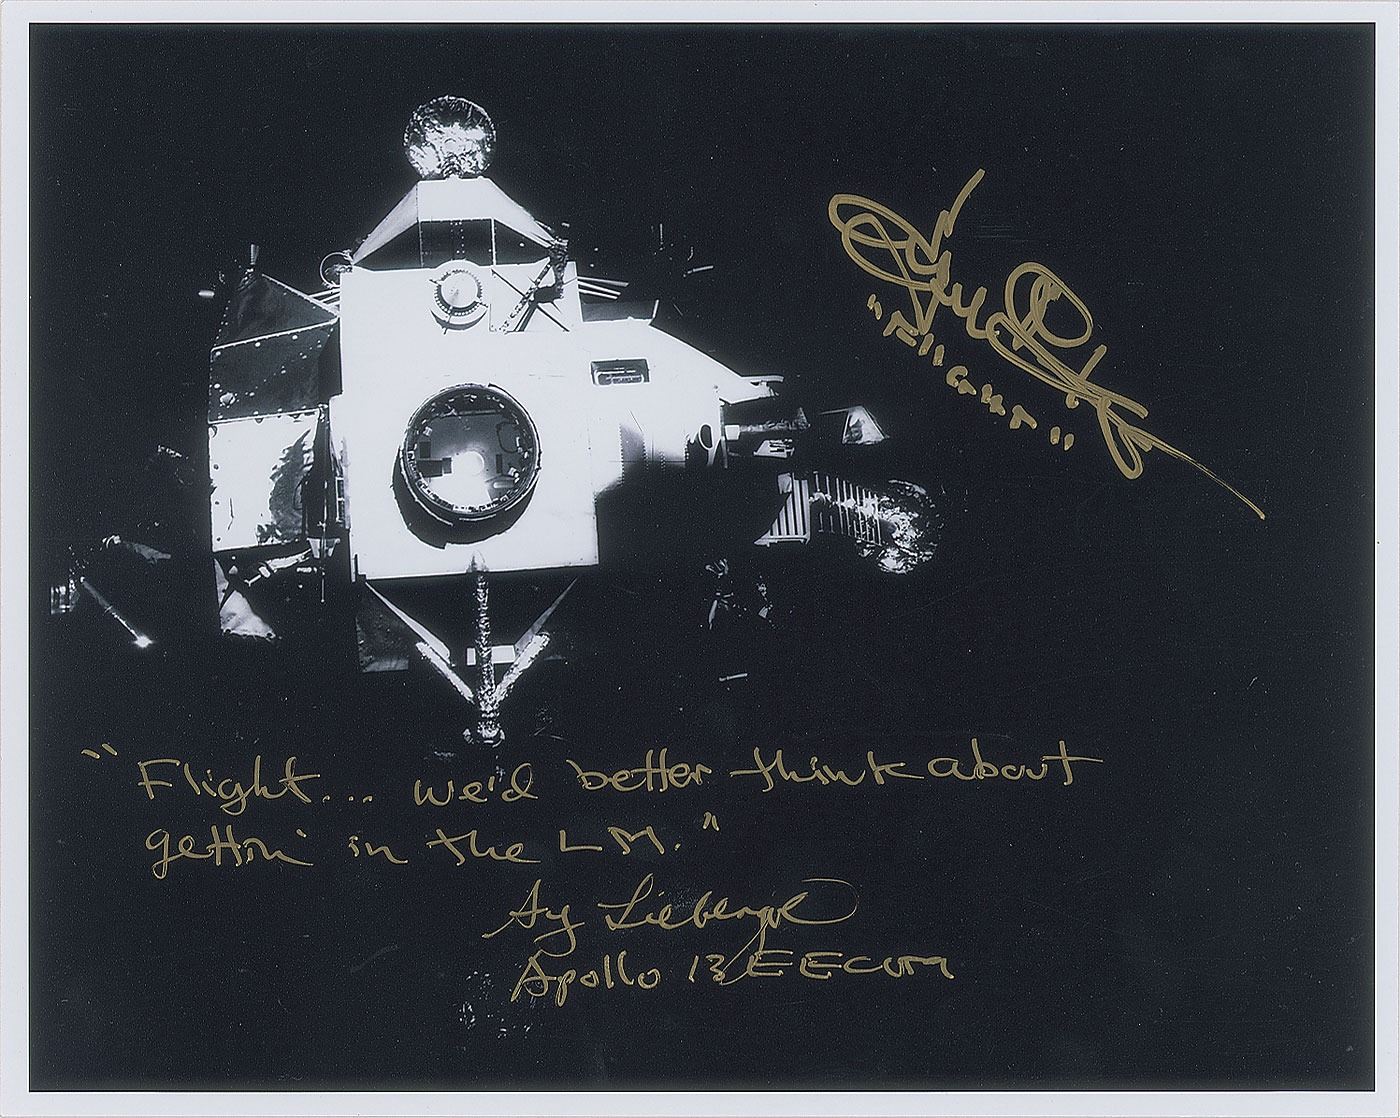 "FLIGHT"
"Flight... we'd better think about
gettin' in the LM."
Sy Liebergot
Apollo 13 EECOM